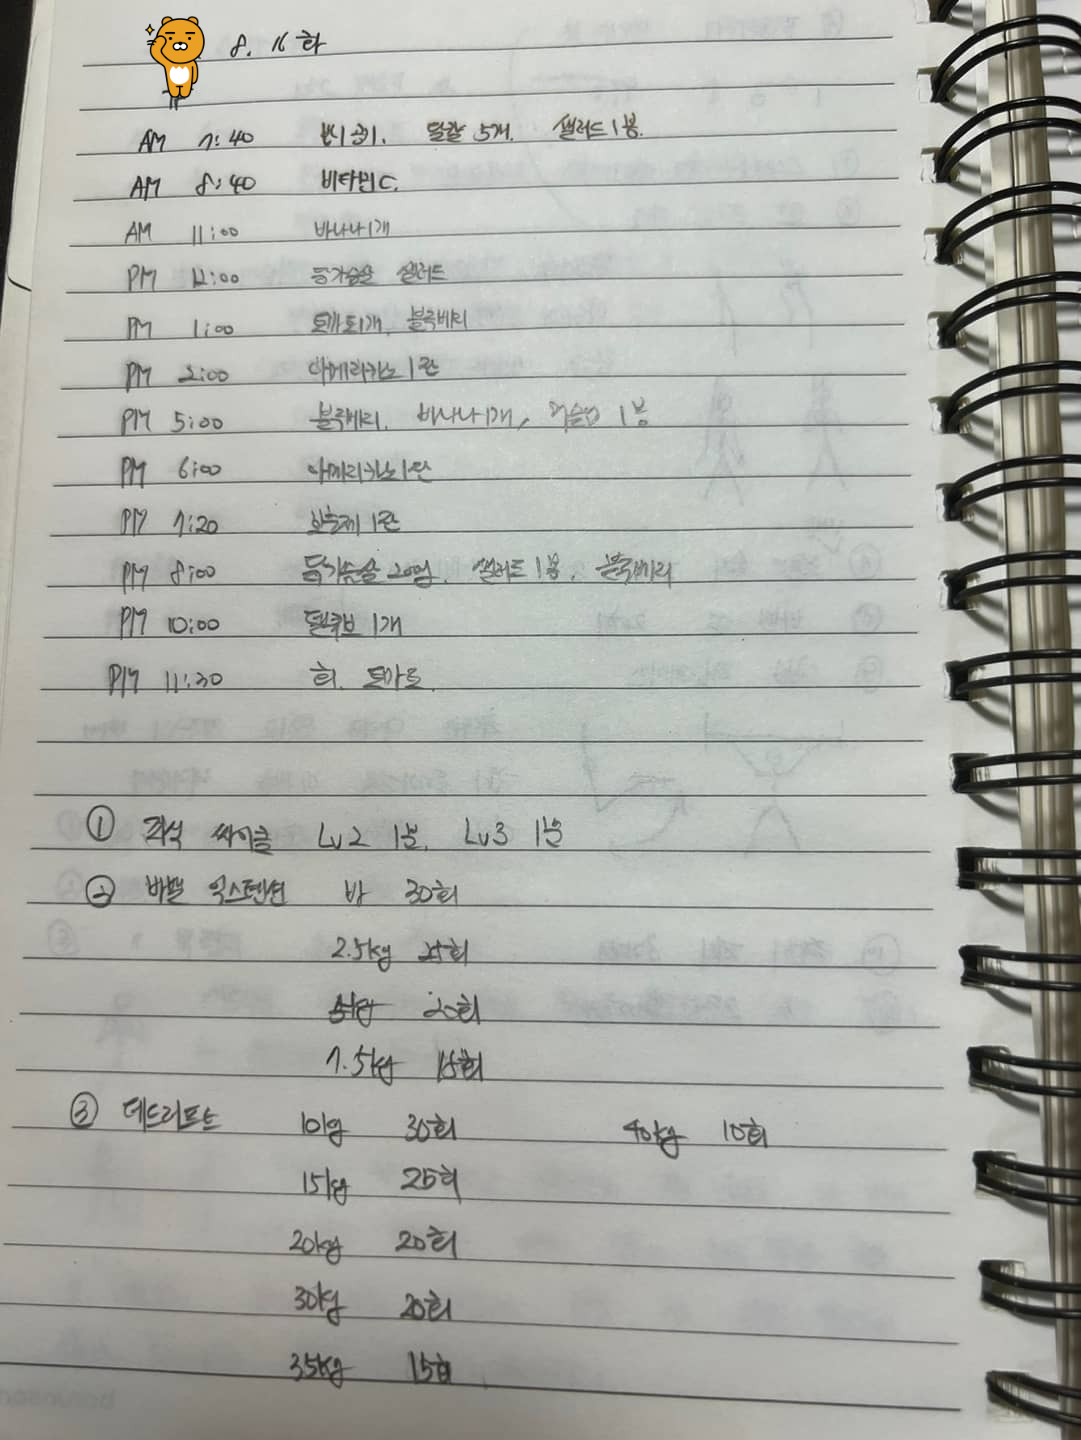 8. 16 화
AM 7:40 달걀 5개. 샐러드 1봉.
AM 8:40 비타민C.
AM 11:00 바나나1개
PM 12:00 닭가슴살 샐러드
PM 1:00 토마토1개, 블루베리
PM 2:00 아메리카노 1잔
PM 5:00 블루베리, 바나나1개, 1봉
PM 6:00 아메리카노1잔
PM 7:20 보충제 1잔
PM 8:00 닭가슴살 샐러드 1봉, 블루베리
PM 10:00 1개
PM 11:30 회. 토마토.
① 좌식 싸이클 Lv2 1분, Lv3 1분
② 바벨 익스텐션 바 30회
2.5kg 25회
5kg 20회
7.5kg 15회
③ 데드리프트 10kg 30회 40kg 10회
15kg 25회
20kg 20회
30kg 20회
35kg 15회